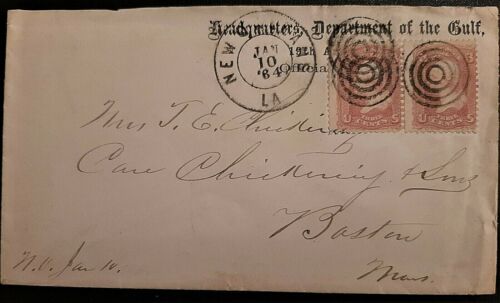 Headquarters, Department of the Gulf,
19th A
Official
NEW
JAN
10
'64
LA
U THREE CENTS S
U THREE CENTS S
Mrs T. E. Chickering
Care Chickering & Sons
Boston
Mass.
N.O. Jan 10.